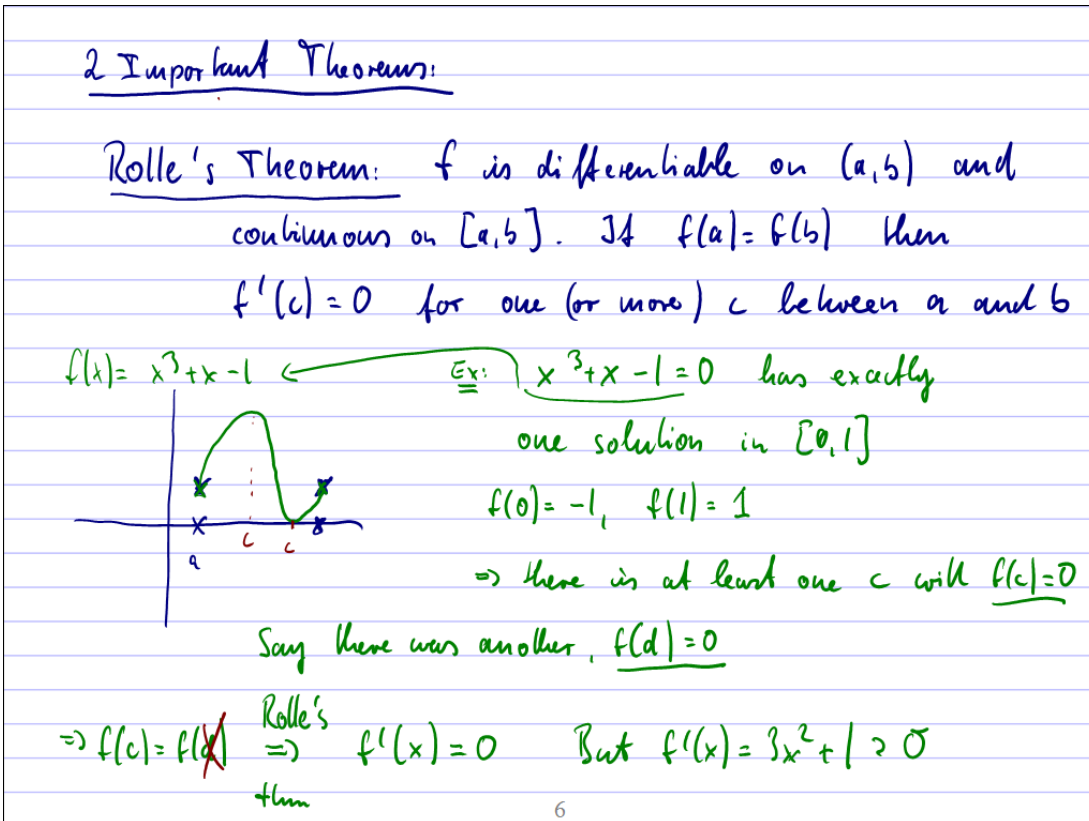 2 Important Theorems:
Rolle's Theorem: f is differentiable on (a,b) and
continuous on [a,b]. If f(a)=f(b) then
f'(c) = 0 for one (or more) c between a and b
f(x)= x³+x-1 ← Ex: x³+x-1=0 has exactly
one solution in [0,1]
f(0)=-1, f(1)=1
a c c b
=> there is at least one c with f(c)=0
Say there was another, f(d)=0
=> f(c)=f(d) Rolle's => thm f'(x)=0 But f'(x)=3x²+1>0
6